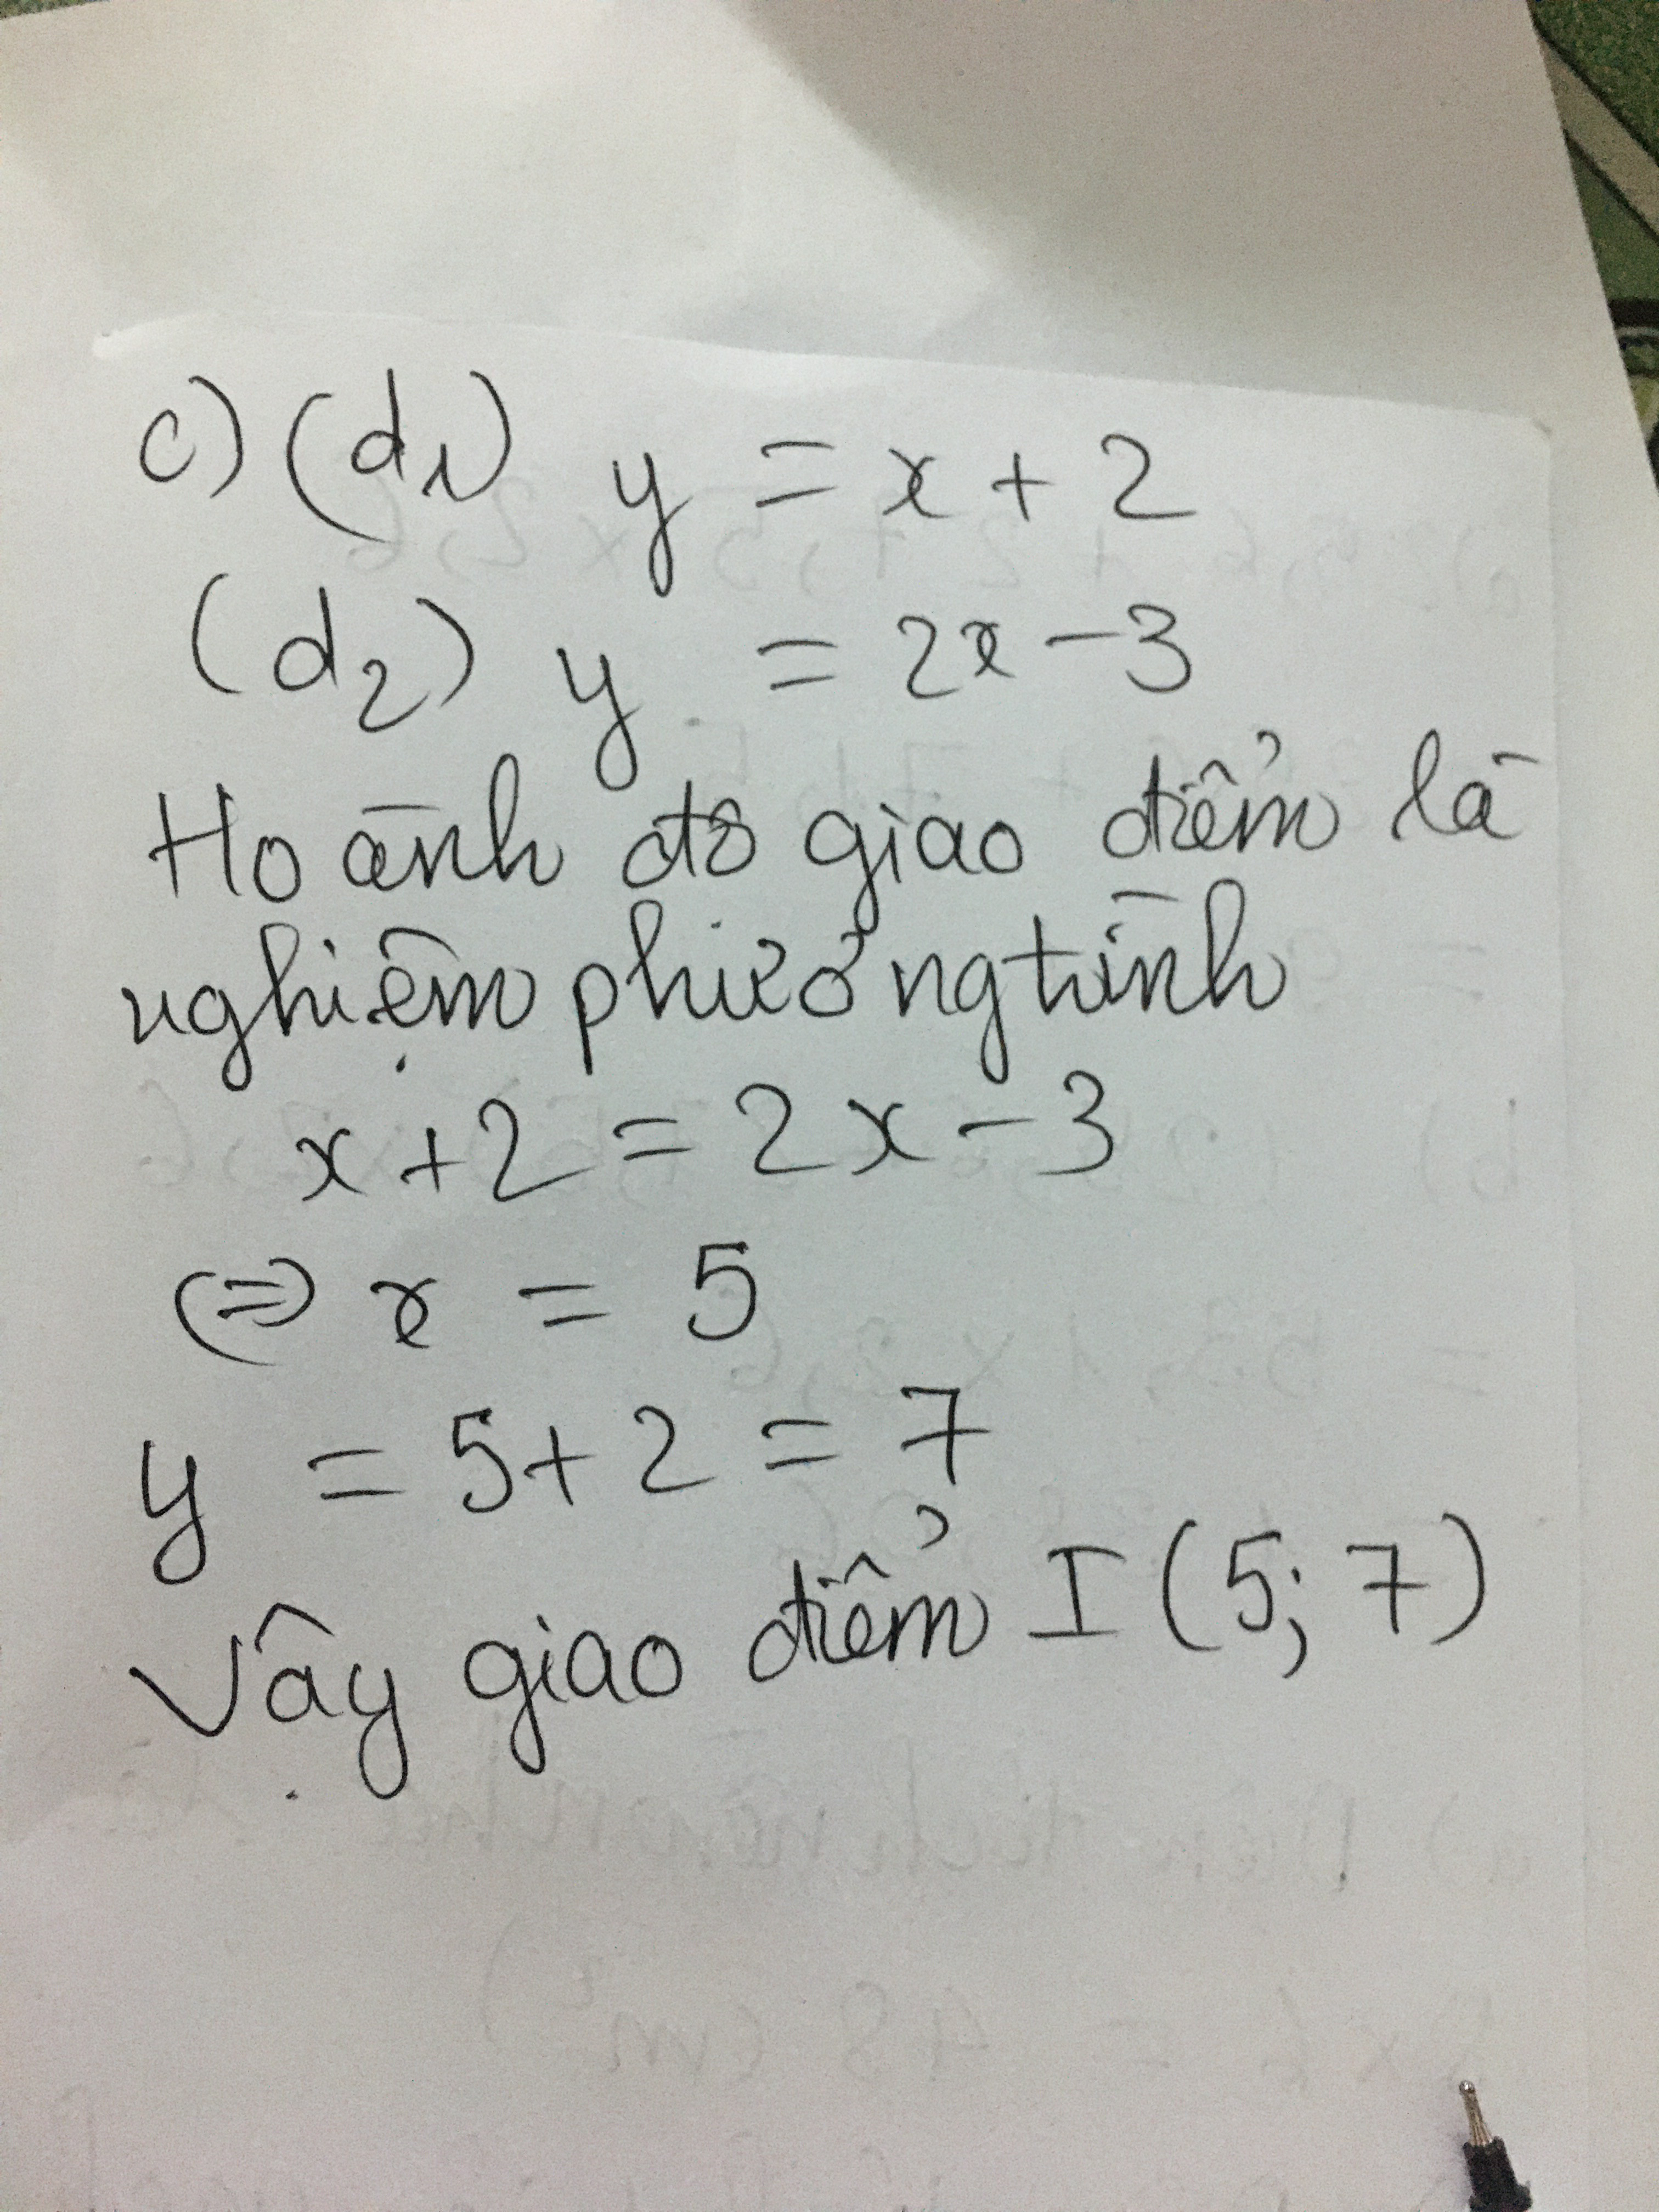 c) (d1) y = x + 2
(d2) y = 2x - 3
Hoành độ giao điểm là
nghiệm phương trình
x + 2 = 2x - 3
(=) x = 5
y = 5 + 2 = 7
Vậy giao điểm I (5; 7)